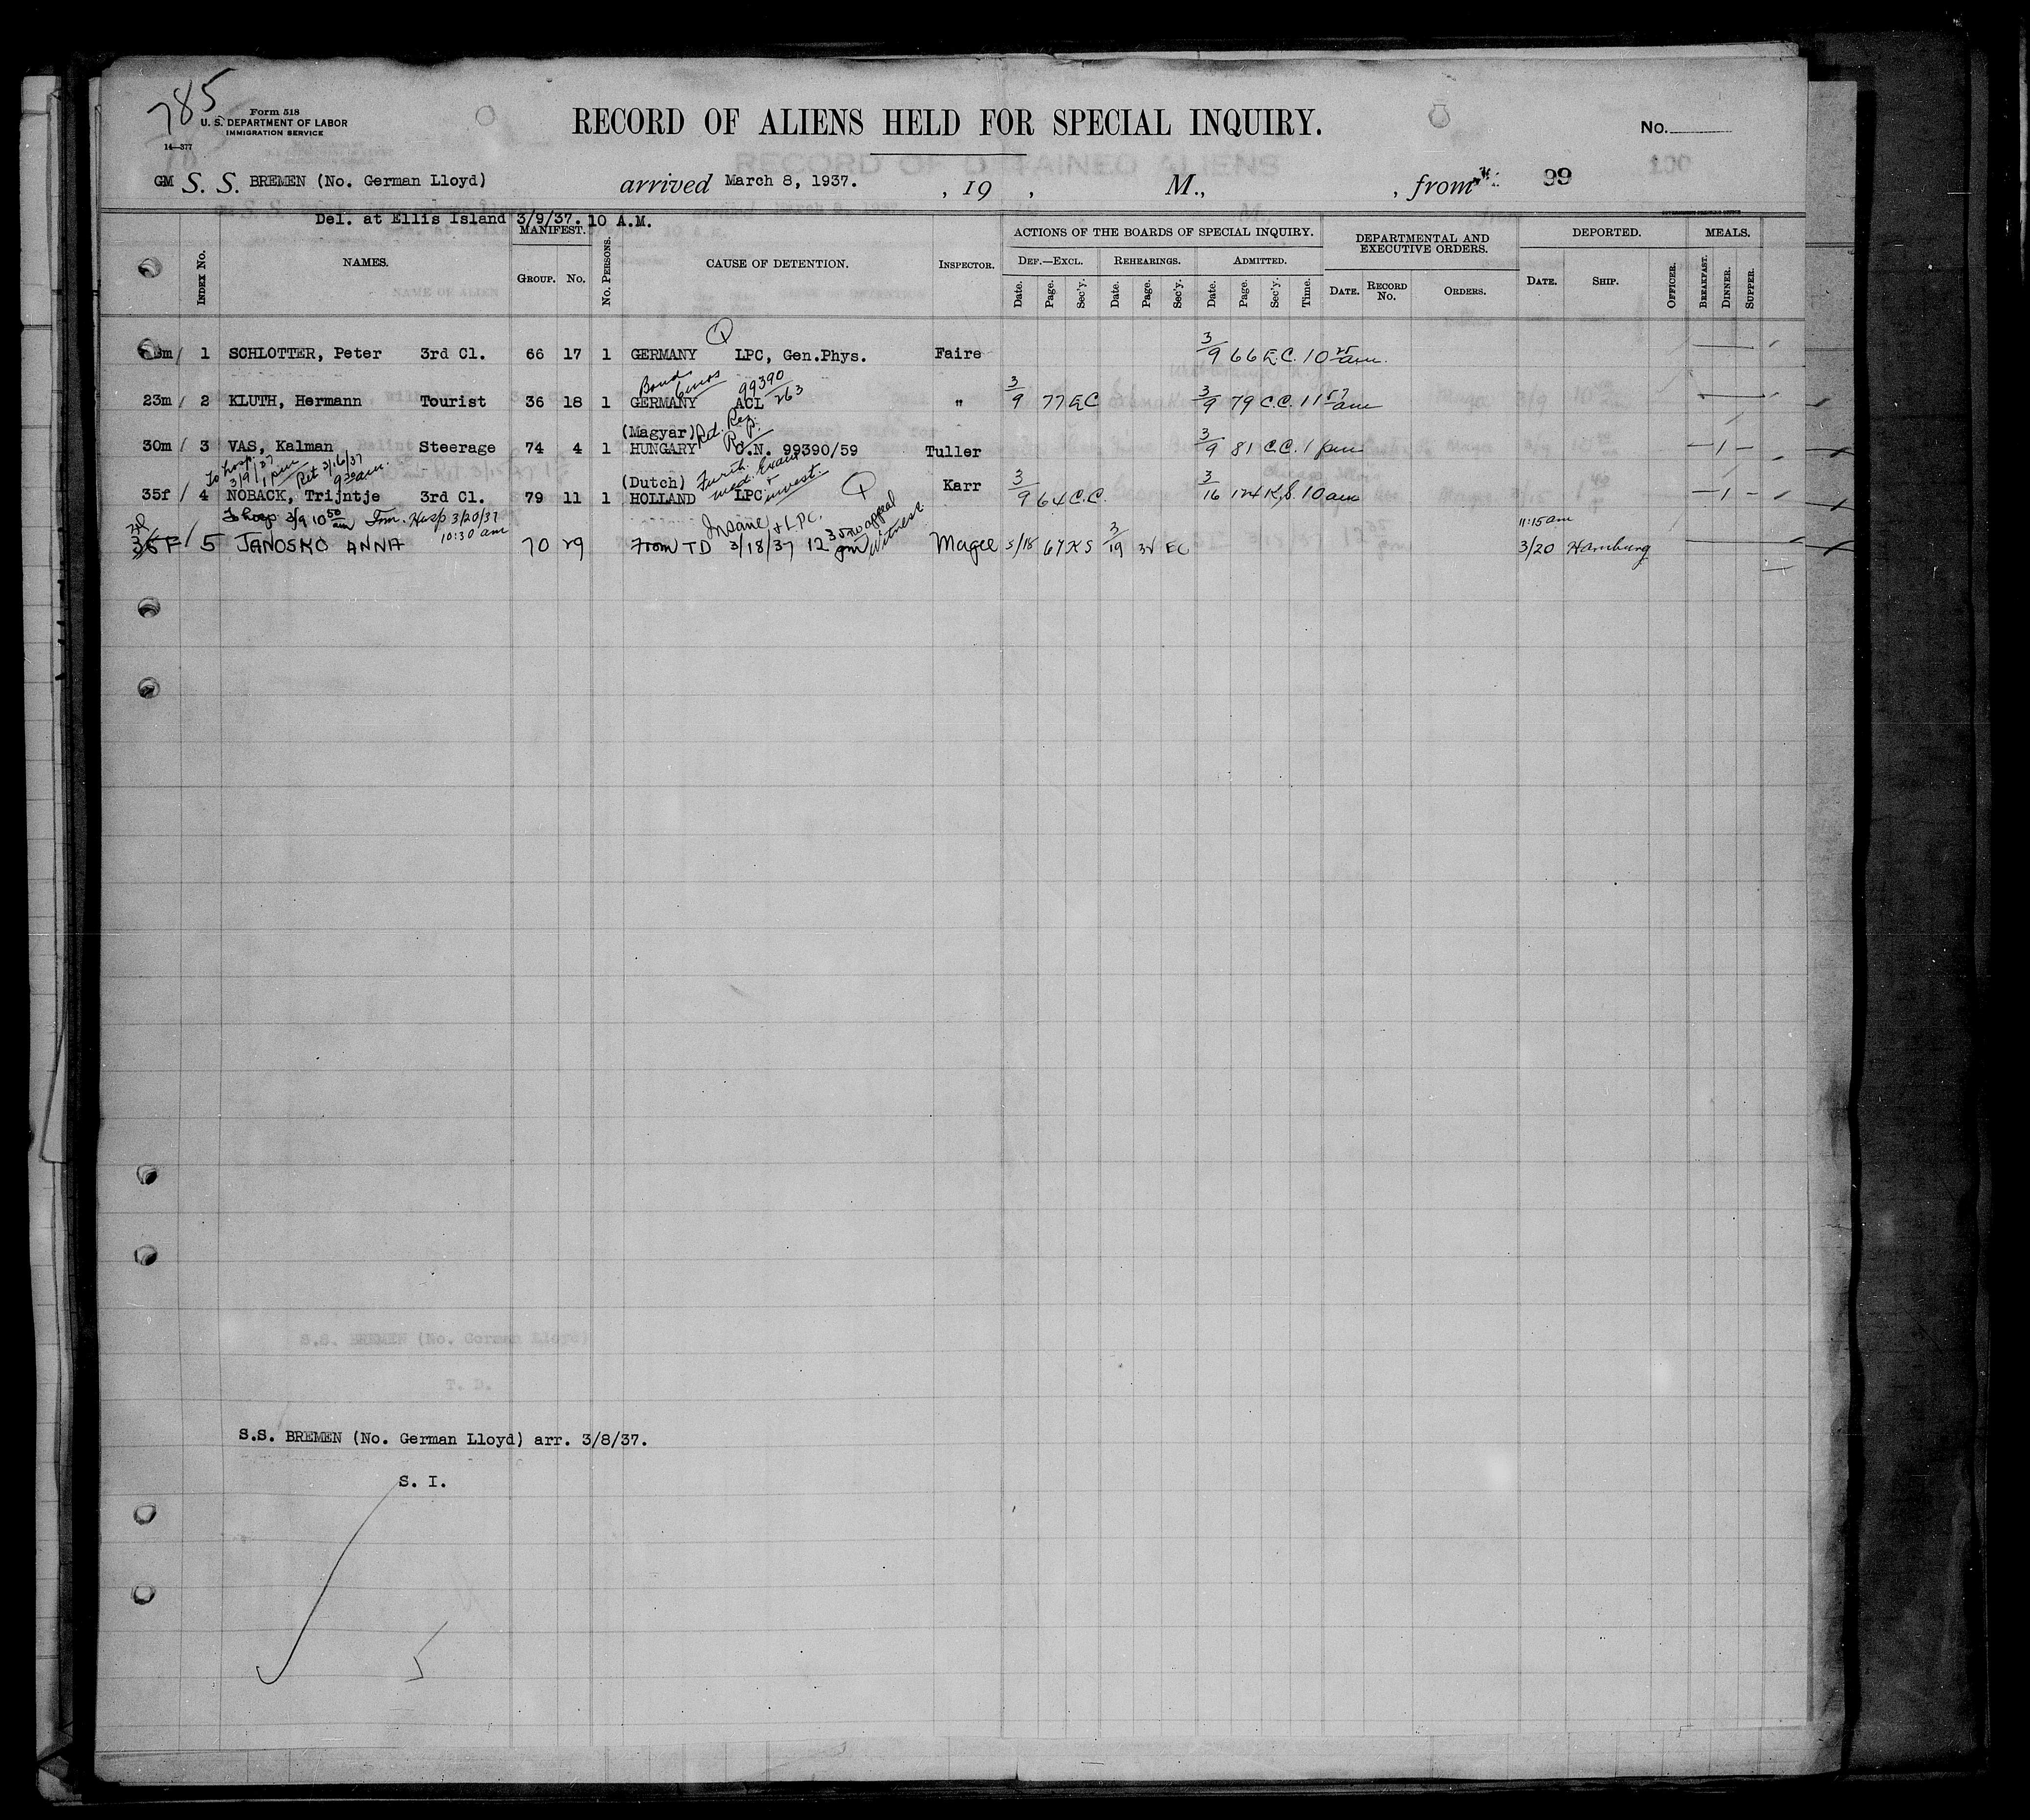 785
Form 518
U. S. DEPARTMENT OF LABOR
IMMIGRATION SERVICE
14—377
RECORD OF ALIENS HELD FOR SPECIAL INQUIRY.
No.
GM S. S. BREMEN (No. German Lloyd) arrived March 8, 1937. , 19 , M., , from 99
Del. at Ellis Island 3/9/37. 10 A.M.
Index No. NAMES. MANIFEST. Group. No. No. Persons. CAUSE OF DETENTION. Inspector. ACTIONS OF THE BOARDS OF SPECIAL INQUIRY. Def.—Excl. Date. Page. Sec'y. Rehearings. Date. Page. Sec'y. Admitted. Date. Page. Sec'y. Time. DEPARTMENTAL AND EXECUTIVE ORDERS. Date. Record No. Orders. DEPORTED. Date. Ship. Officer. MEALS. Breakfast. Dinner. Supper.
m 1 SCHLOTTER, Peter 3rd Cl. 66 17 1 GERMANY LPC, Gen.Phys. Faire 3/9 66 E.C. 10 25 am.
Bond 6 mos 99390/263
23m 2 KLUTH, Hermann Tourist 36 18 1 GERMANY ACL " 3/9 77 EC 3/9 79 C.C. 11 57 am
(Magyar) Ret. Res.
30m 3 VAS, Kalman Steerage 74 4 1 HUNGARY C.N. 99390/59 Tuller 3/9 81 C.C. 1 pm
To hosp. 3/9/37 1 pm Ret 3/16/37 9 30 am.
(Dutch) Furth. med. Exam + invest.
35f 4 NOBACK, Trijntje 3rd Cl. 79 11 1 HOLLAND LPC Karr 3/9 64 C.C. 3/16 124 K.S. 10 am
To hosp 3/9 10 50 am Frm. Hosp 3/20/37 10:30 am
Insane + LPC. no appeal Witness
F 5 JANOSKO ANNA 70 29 From TD 3/18/37 12 35 pm Magee 3/18 67 KS 3/19 32 EC 11:15 am 3/20 Hamburg
S.S. BREMEN (No. German Lloyd) arr. 3/8/37.
S. I.
5